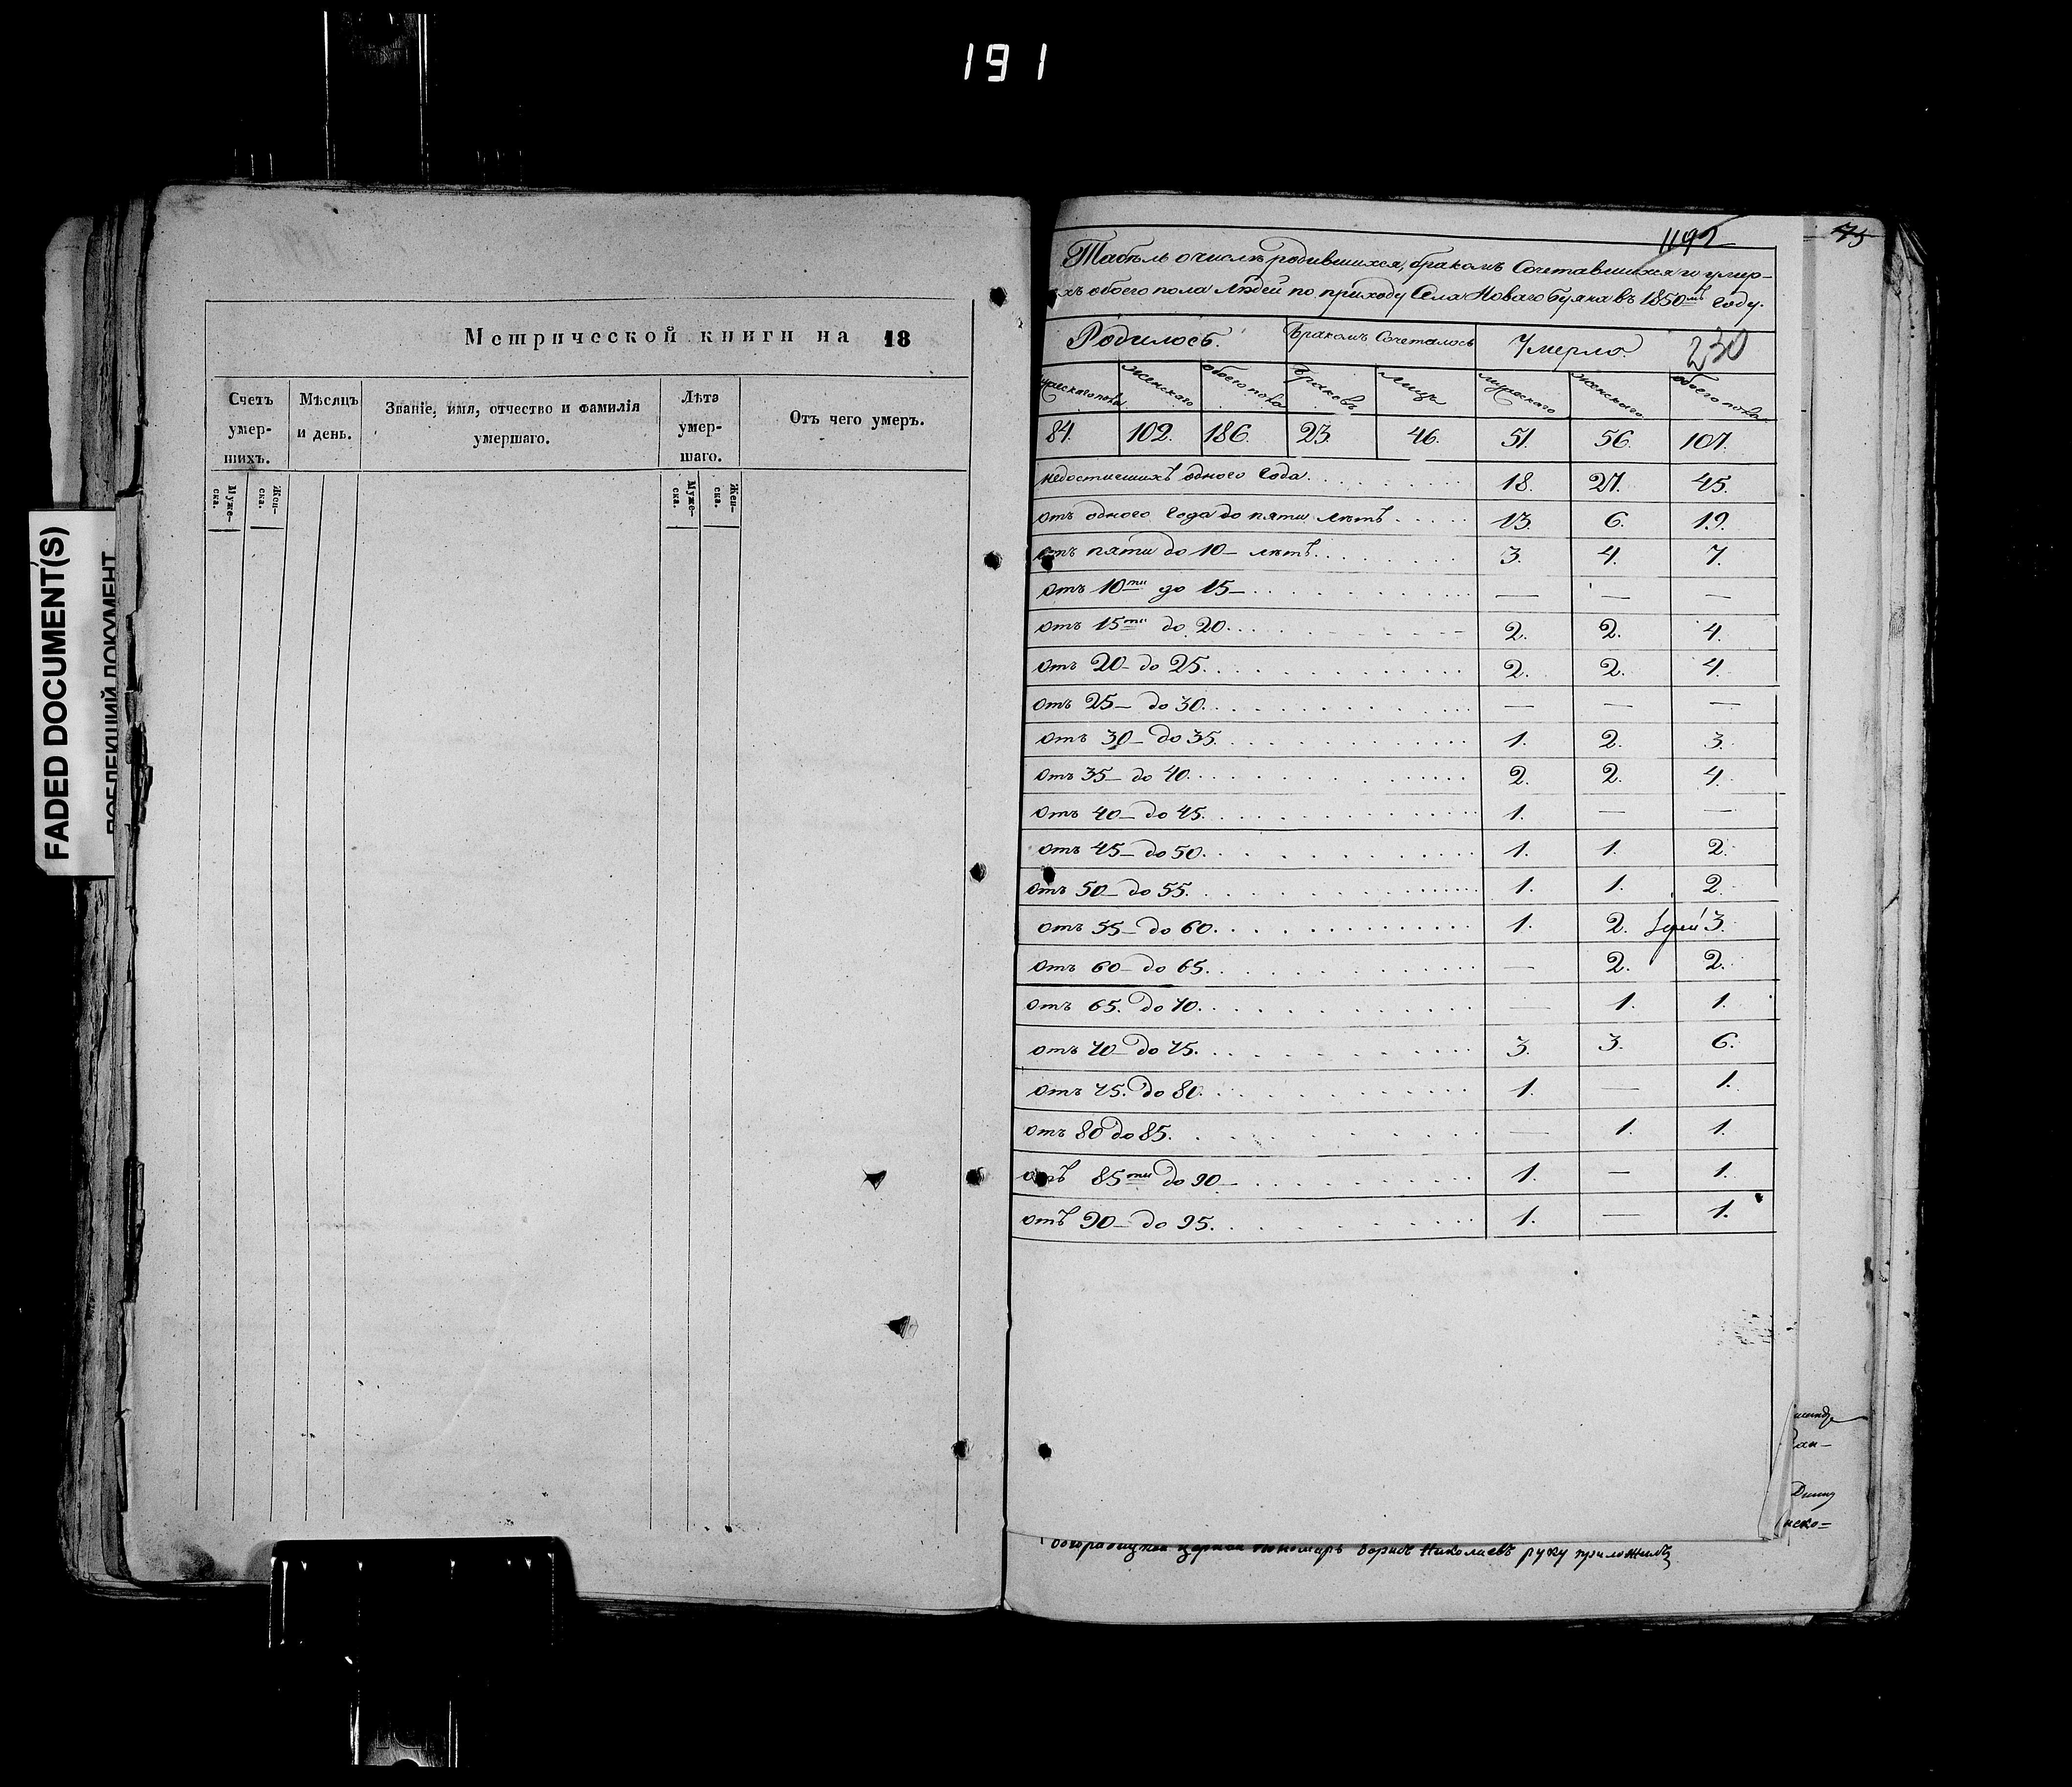 191
FADED DOCUMENT(S)
Метрической книги на 18
Счетъ умер-шихъ.
Мѣсяцъ и день.
Званіе, имя, отчество и фамилія умершаго.
Лѣта умер-шаго.
Отъ чего умеръ.
Муже-ска.
Жен-ска.
Муже-ска.
Жен-ска.
1192
75
Табель о числѣ родившихся, бракомъ сочетавшихся и умер-
хъ обоего пола людей по приходу Села Новаго Буяна въ 1850мъ году.
Родилось. Бракомъ Сочеталось Умерло. 230
мужескаго пола женскаго обоего пола Браковъ лицъ мужескаго женскаго обоего пола
84. 102. 186. 23. 46. 51. 56. 107.
недостигшихъ одного года. 18. 27. 45.
отъ одного года до пяти лѣтъ 13. 6. 19.
отъ пяти до 10 – лѣтъ. 3. 4. 7.
отъ 10ти до 15 – — — —
отъ 15ти до 20. 2. 2. 4.
отъ 20 – до 25. 2. 2. 4.
отъ 25 – до 30. — — —
отъ 30 – до 35. 1. 2. 3.
отъ 35 – до 40. 2. 2. 4.
отъ 40 – до 45. 1. — —
отъ 45 – до 50. 1. 1. 2.
отъ 50 – до 55. 1. 1. 2.
отъ 55 – до 60. 1. 2. 3.
отъ 60 – до 65. — 2. 2.
отъ 65. до 70. — 1. 1.
отъ 70 – до 75. 3. 3. 6.
отъ 75. до 80. 1. — 1.
отъ 80 до 85. — 1. 1.
отъ 85ти до 90 – 1. — 1.
отъ 90 – до 95. 1. — 1.
пономарь Борисъ Николаевъ руку приложилъ